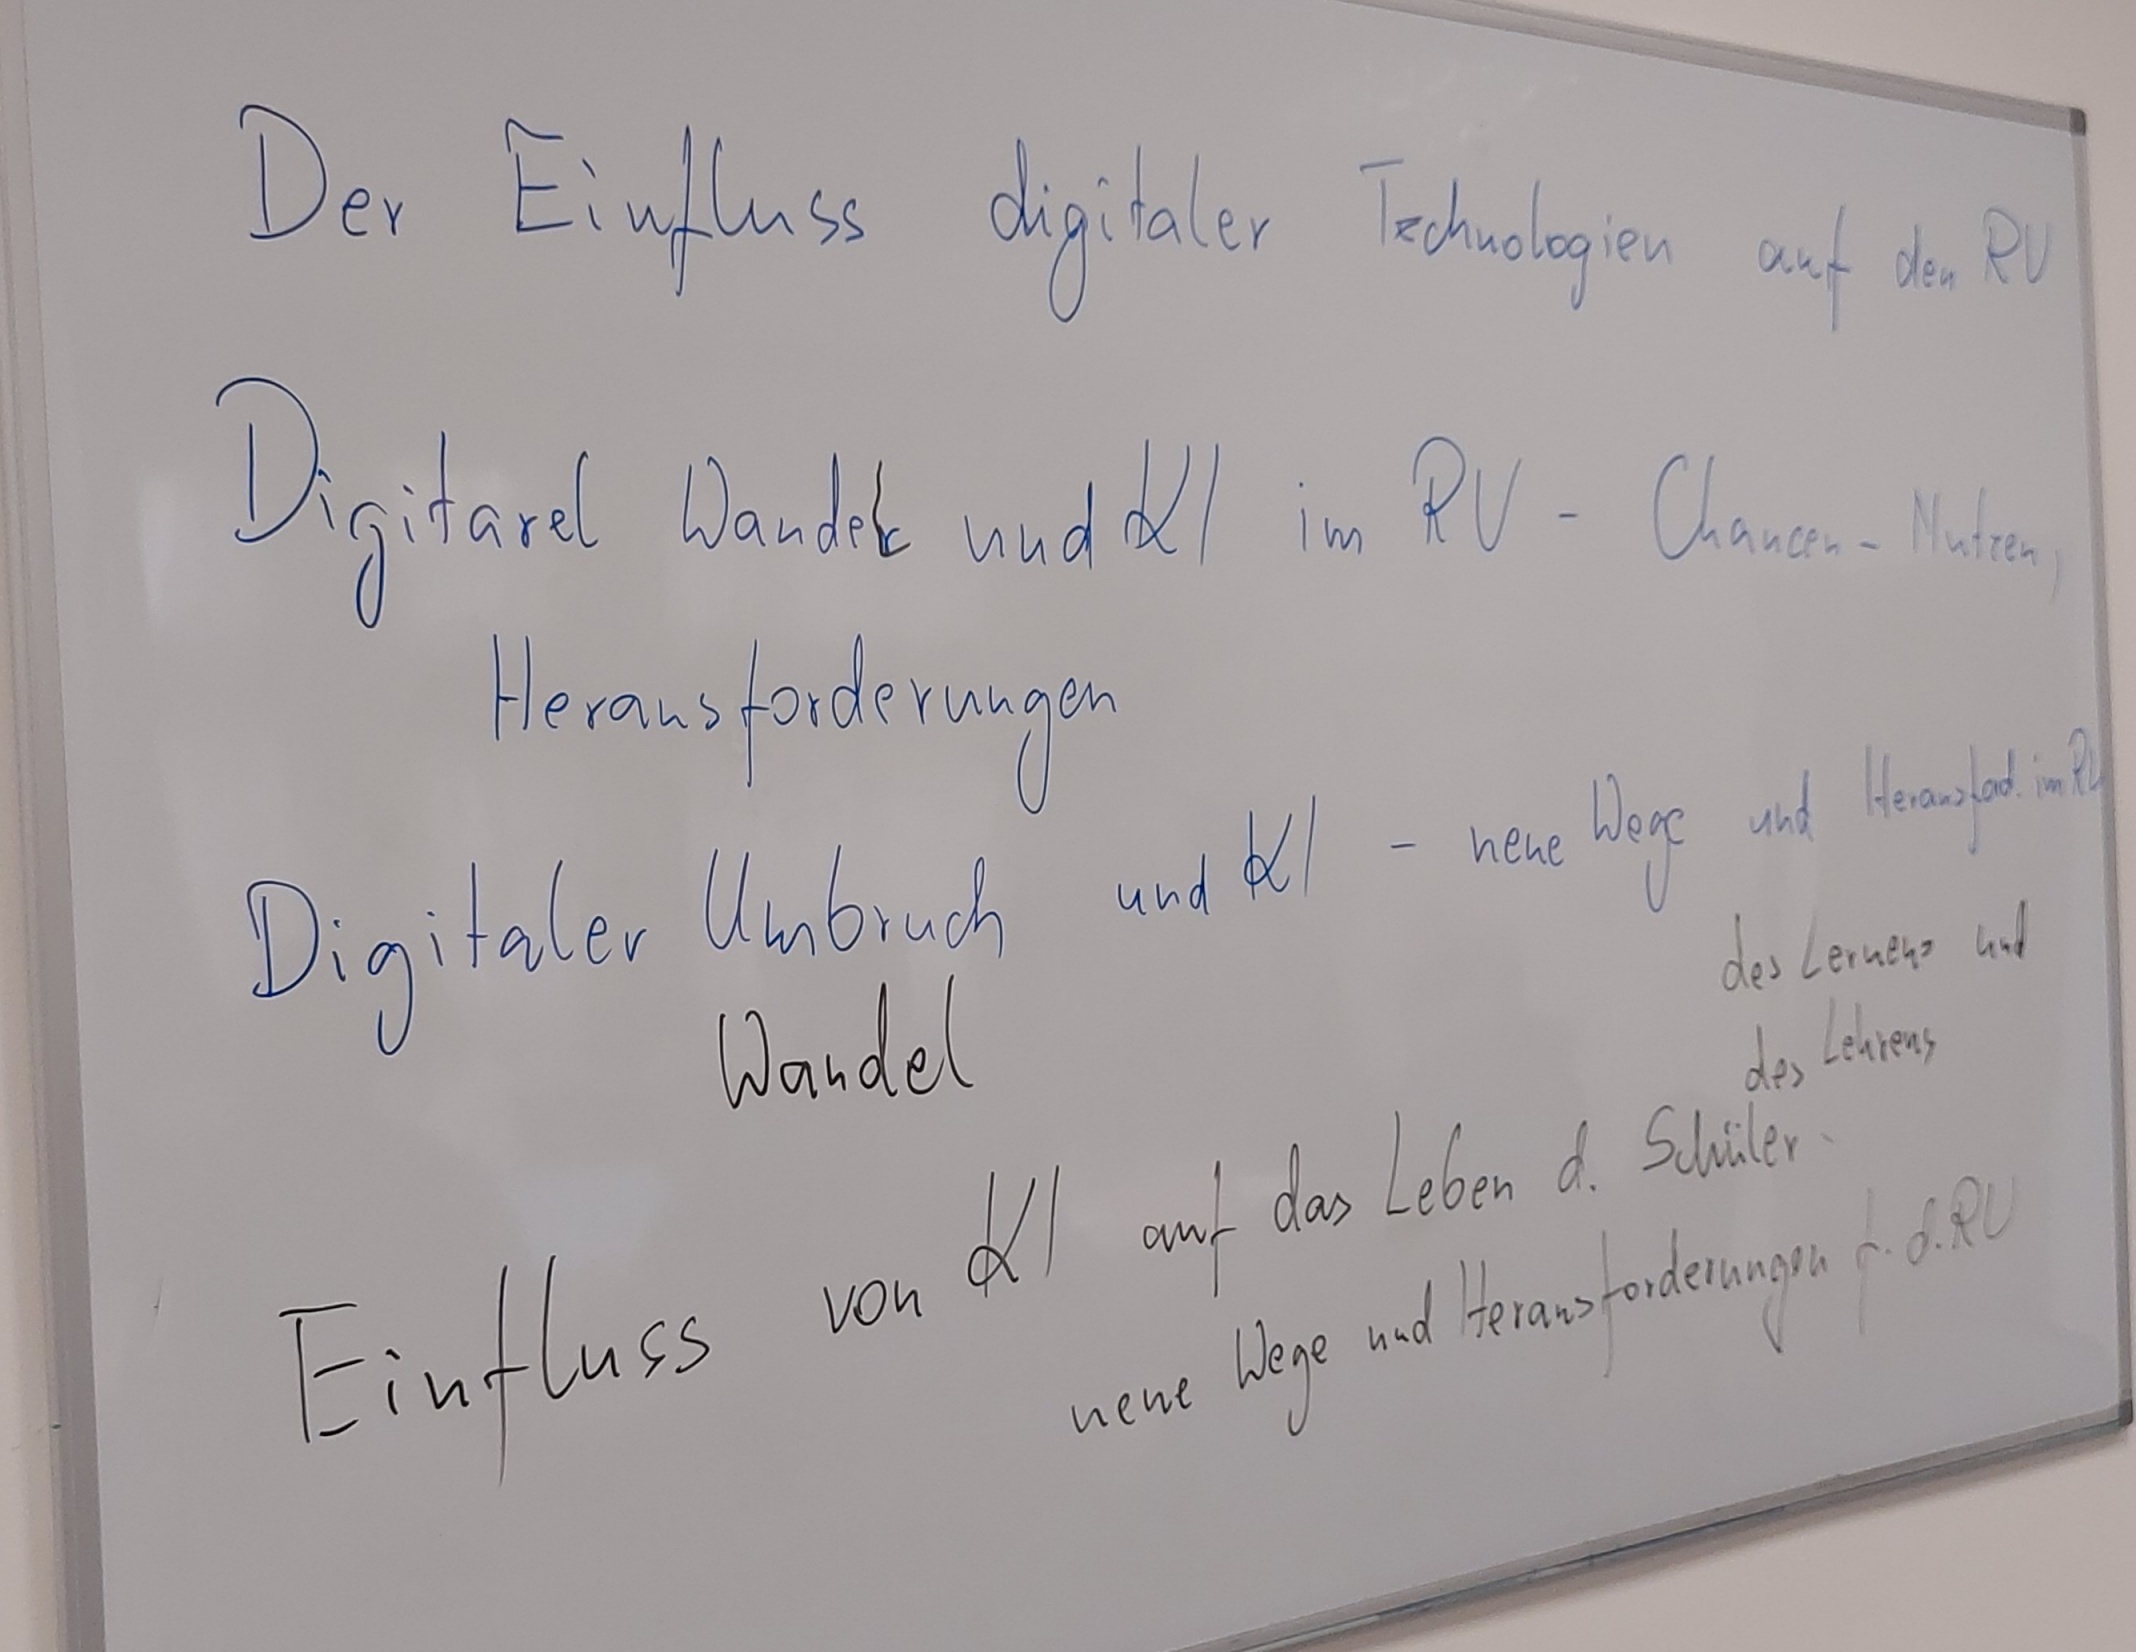 Der Einfluss digitaler Technologien auf den RU
Digitarel Wandel und KI im RU - Chancen - Nutzen,
Herausforderungen
Digitaler Umbruch und KI - neue Wege und Herausfod. im RU
des Lernens und
Wandel
des Lehrens
Einfluss von KI auf das Leben d. Schüler -
neue Wege und Herausforderungen f. d. RU